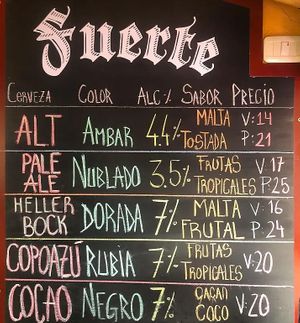 Fuerte
CERVEZA COLOR ALC% SABOR PRECIO
ALT AMBAR 4.4% MALTA TOSTADA V:14 P:21
PALE ALE NUBLADO 3.5% FRUTAS TROPICALES V.17 P:25
HELLER BOCK DORADA 7% MALTA FRUTAL V.16 P.24
COPOAZÚ RUBIA 7% FRUTAS TROPICALES V:20
CACAO NEGRO 7% COCO V:20